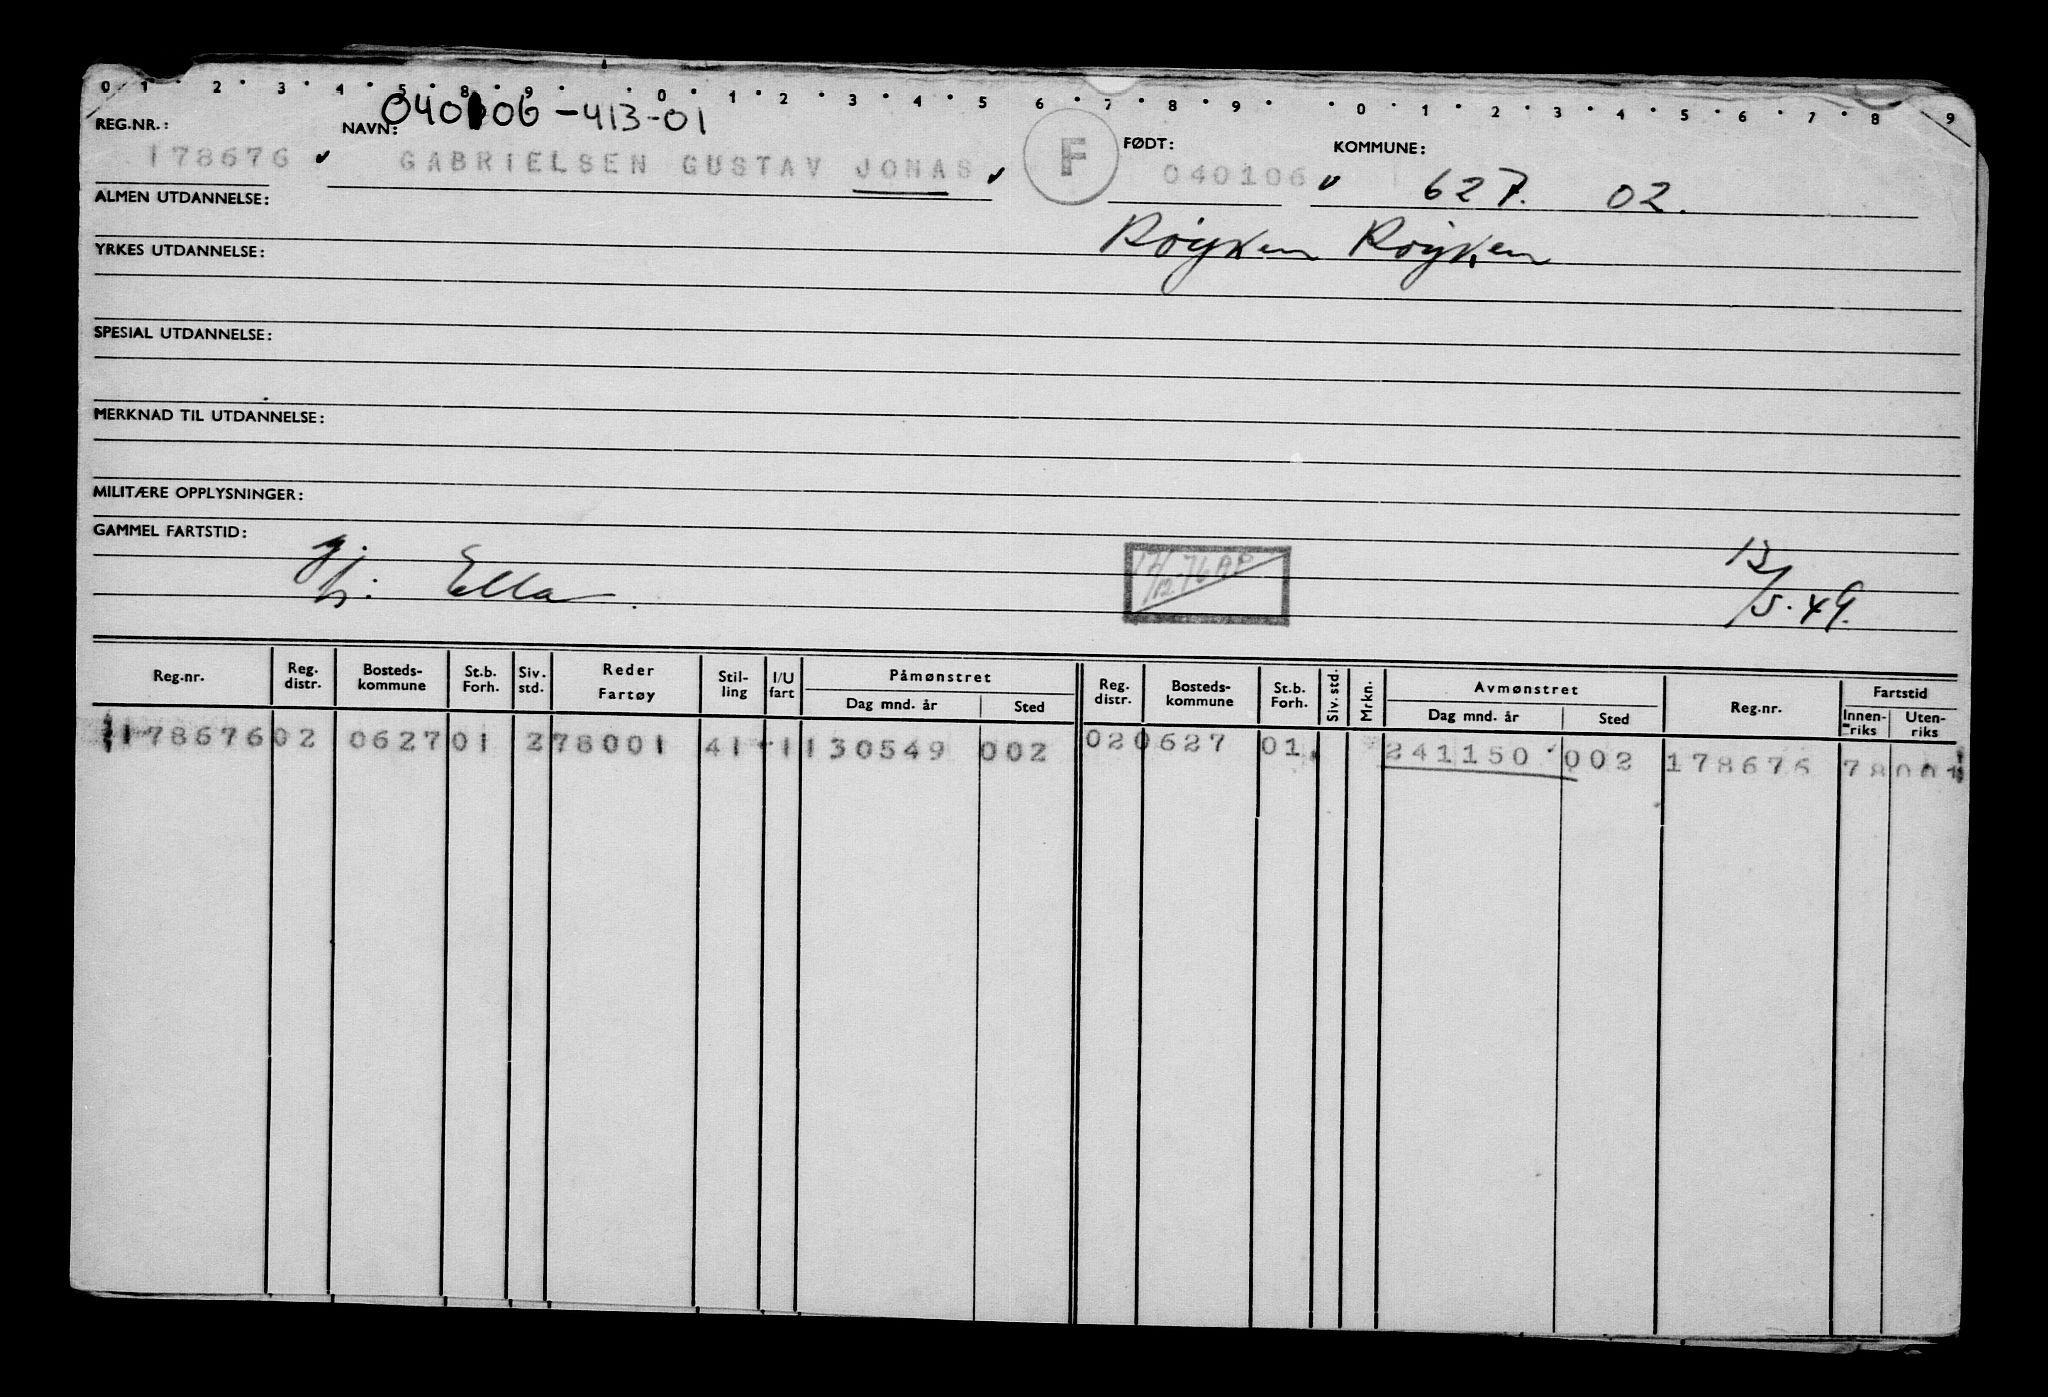 0 1 2 3 4 5 8 9 0 1 2 3 4 5 6 7 8 9 0 1 2 3 4 5 6 7 8 9
040106-413-01
REG.NR.: NAVN: FØDT: KOMMUNE:
178676 GABRIELSEN GUSTAV JONAS F 040106 627. 02.
ALMEN UTDANNELSE:
Røyken Røyken
YRKES UTDANNELSE:
SPESIAL UTDANNELSE:
MERKNAD TIL UTDANNELSE:
MILITÆRE OPPLYSNINGER:
GAMMEL FARTSTID:
Ella. 17/12-76 13/5.49.
Reg.nr. Reg. distr. Bosteds-kommune St.b. Forh. Siv. std. Reder Fartøy Stil-ling I/U fart Påmønstret Dag mnd. år Sted Reg. distr. Bosteds-kommune St.b. Forh. Siv. std. Mrkn. Avmønstret Dag mnd. år Sted Reg.nr. Fartstid Innen-riks Uten-riks
178676 02 0627 01 2 78001 41 1 130549 002 02 0627 01 241150 002 178676 78001